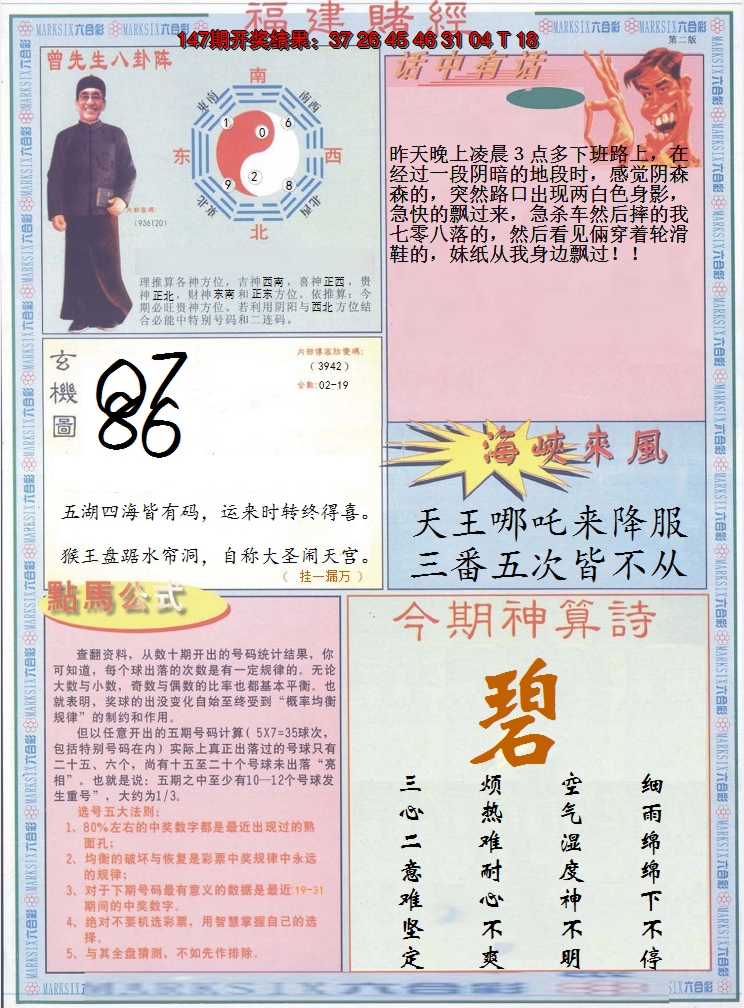 福建賭經
147期开奖结果：37 26 45 46 31 04 T 18
第二版
曾先生八卦阵
南
东南
南西
东
西
东北
北西
北
1
0
6
9
2
8
内部密碼:
(936120)
理推算各神方位，吉神西南，喜神正西，贵
神正北，财神东南和正东方位。依推算：今
期必旺贵神方位。若利用阴阳与西北方位结
合必能中特别号码和二连码。
话中有话
昨天晚上凌晨３点多下班路上，在
经过一段阴暗的地段时，感觉阴森
森的，突然路口出现两白色身影，
急快的飘过来，急杀车然后摔的我
七零八落的，然后看见俩穿着轮滑
鞋的，妹纸从我身边飘过！！
玄機圖
07
86
内部傳器防變碼:
(3942)
合數:02-19
五湖四海皆有码，运来时转终得喜。
猴王盘踞水帘洞，自称大圣闹天宫。
（挂一漏万）
海峽來風
天王哪吒来降服
三番五次皆不从
點馬公式
查翻资料，从数十期开出的号码统计结果，你
可知道，每个球出落的次数是有一定规律的。无论
大数与小数，奇数与偶数的比率也都基本平衡。也
就表明，奖球的出没变化自始至终受到“概率均衡
规律”的制约和作用。
但以任意开出的五期号码计算（5X7=35球次，
包括特别号码在内）实际上真正出落过的号球只有
二十五、六个，尚有十五至二十个号球未出落“亮
相”。也就是说：五期之中至少有10—12个号球发
生重号”，大约为1/3。
选号五大法则：
1、80%左右的中奖数字都是最近出现过的熟
面孔；
2、均衡的破坏与恢复是彩票中奖规律中永远
的规律；
3、对于下期号码最有意义的数据是最近19-31
期间的中奖数字。
4、绝对不要机选彩票，用智慧掌握自己的选
择。
5、与其全盘猜测，不如先作排除。
今期神算詩
碧
细雨绵绵下不停
空气湿度神不明
烦热难耐心不爽
三心二意难坚定
MARKSIX六合彩